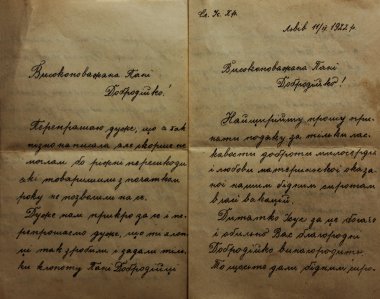 Високоповажана Пані
Добродійко!
Перепрашаю дуже, що а так
пізно написала але скорше не
могла, бо ріжні перешкоди
які товаришили з початком
року не позволили на се.
Дуже нам прикро да же і пе-
репрошаємо дуже, що ті хлоп-
ці так зробили і задали тіль-
ки клопоту Пані Добродійці
Сл. Іс. Хр.
Львів 11/IX 1922 р.
Високоповажана Пані
Добродійко!
Найщирійшу прошу при-
няти подяку за тільки лас-
кавости доброти милосердя
і любови материнської оказа-
ної нашим бідним сиротам
в часі вакацій.
Дитятко Ісус за це богато
і обильно Вас благородні
Добродійко винагородить.
По щасті дали бідним сиро-